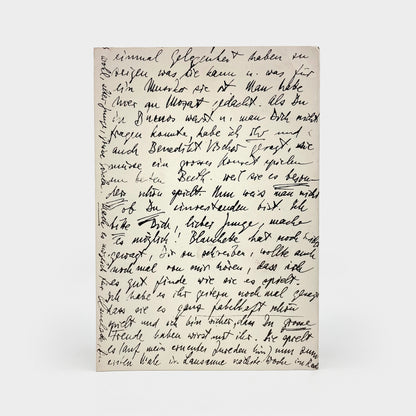 einmal Gelegenheit haben zu
zeigen was sie kann u. was für
ein Musiker sie ist. Man habe
hier an Mozart gedacht. Als Du
in Buenos warst u. man Dich nicht
fragen konnte, habe ich ihr und
auch Benedikt gesagt, sie
müsse ein grosses Konzert spielen
am Beeth. weil sie es beson-
ders schön spielt. Nun weiss man nicht
ob Du einverstanden bist. Ich
bitte Dich, lieber Junge, mache
es möglich! Blancheta hat noch nicht
gewagt, Dir zu schreiben, wollte auch
noch mal von mir hören, dass ich
es gut finde wie sie es spielt.
Ich habe es ihr gestern noch mal gesagt
dass sie es ganz fabelhaft schön
spielt und ich bin sicher, dass Du grosse
Freude haben wirst mit ihr. Sie spielt
es (auf mein erneutes Zureden hin) nun zum
ersten Male in Lausanne nächste Woche